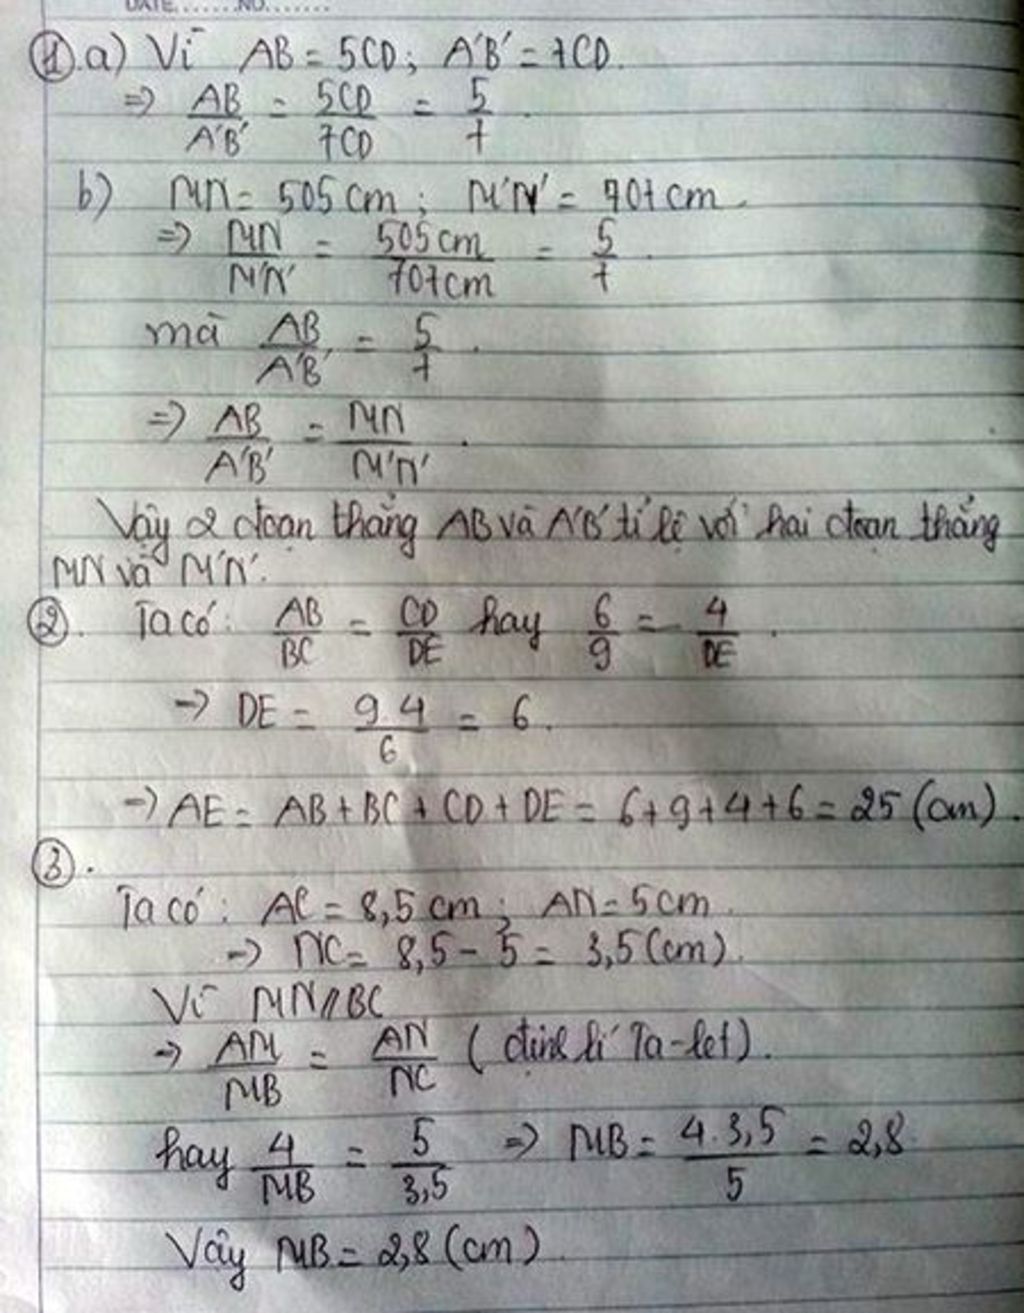 DATE.......NO.......
①.a) Vì AB = 5CD; A'B' = 7CD.
=> AB/A'B' = 5CD/7CD = 5/7.
b) MN = 505 cm; M'N' = 707 cm.
=> MN/M'N' = 505cm/707cm = 5/7.
mà AB/A'B' = 5/7.
=> AB/A'B' = MN/M'N'.
Vậy 2 đoạn thẳng AB và A'B' tỉ lệ với hai đoạn thẳng
MN và M'N'.
②. Ta có: AB/BC = CD/DE hay 6/9 = 4/DE.
-> DE = 9.4/6 = 6.
-> AE = AB + BC + CD + DE = 6+9+4+6 = 25 (cm).
③.
Ta có: AC = 8,5 cm; AN = 5cm.
-> NC = 8,5 - 5 = 3,5 (cm).
Vì MN // BC
-> AM/MB = AN/NC (định lí Ta-let).
hay 4/MB = 5/3,5 => MB = 4.3,5/5 = 2,8.
Vậy MB = 2,8 (cm).